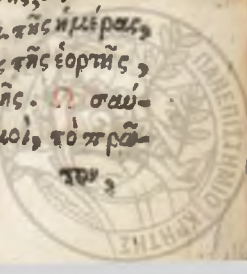 τῆς ἡμέρας,
τῆς ἑορτῆς,
σαύ-
τὸ πρῶ-
τον,
ΠΑΝΕΠΙΣΤΗΜΙΟ ΚΡΗΤΗΣ